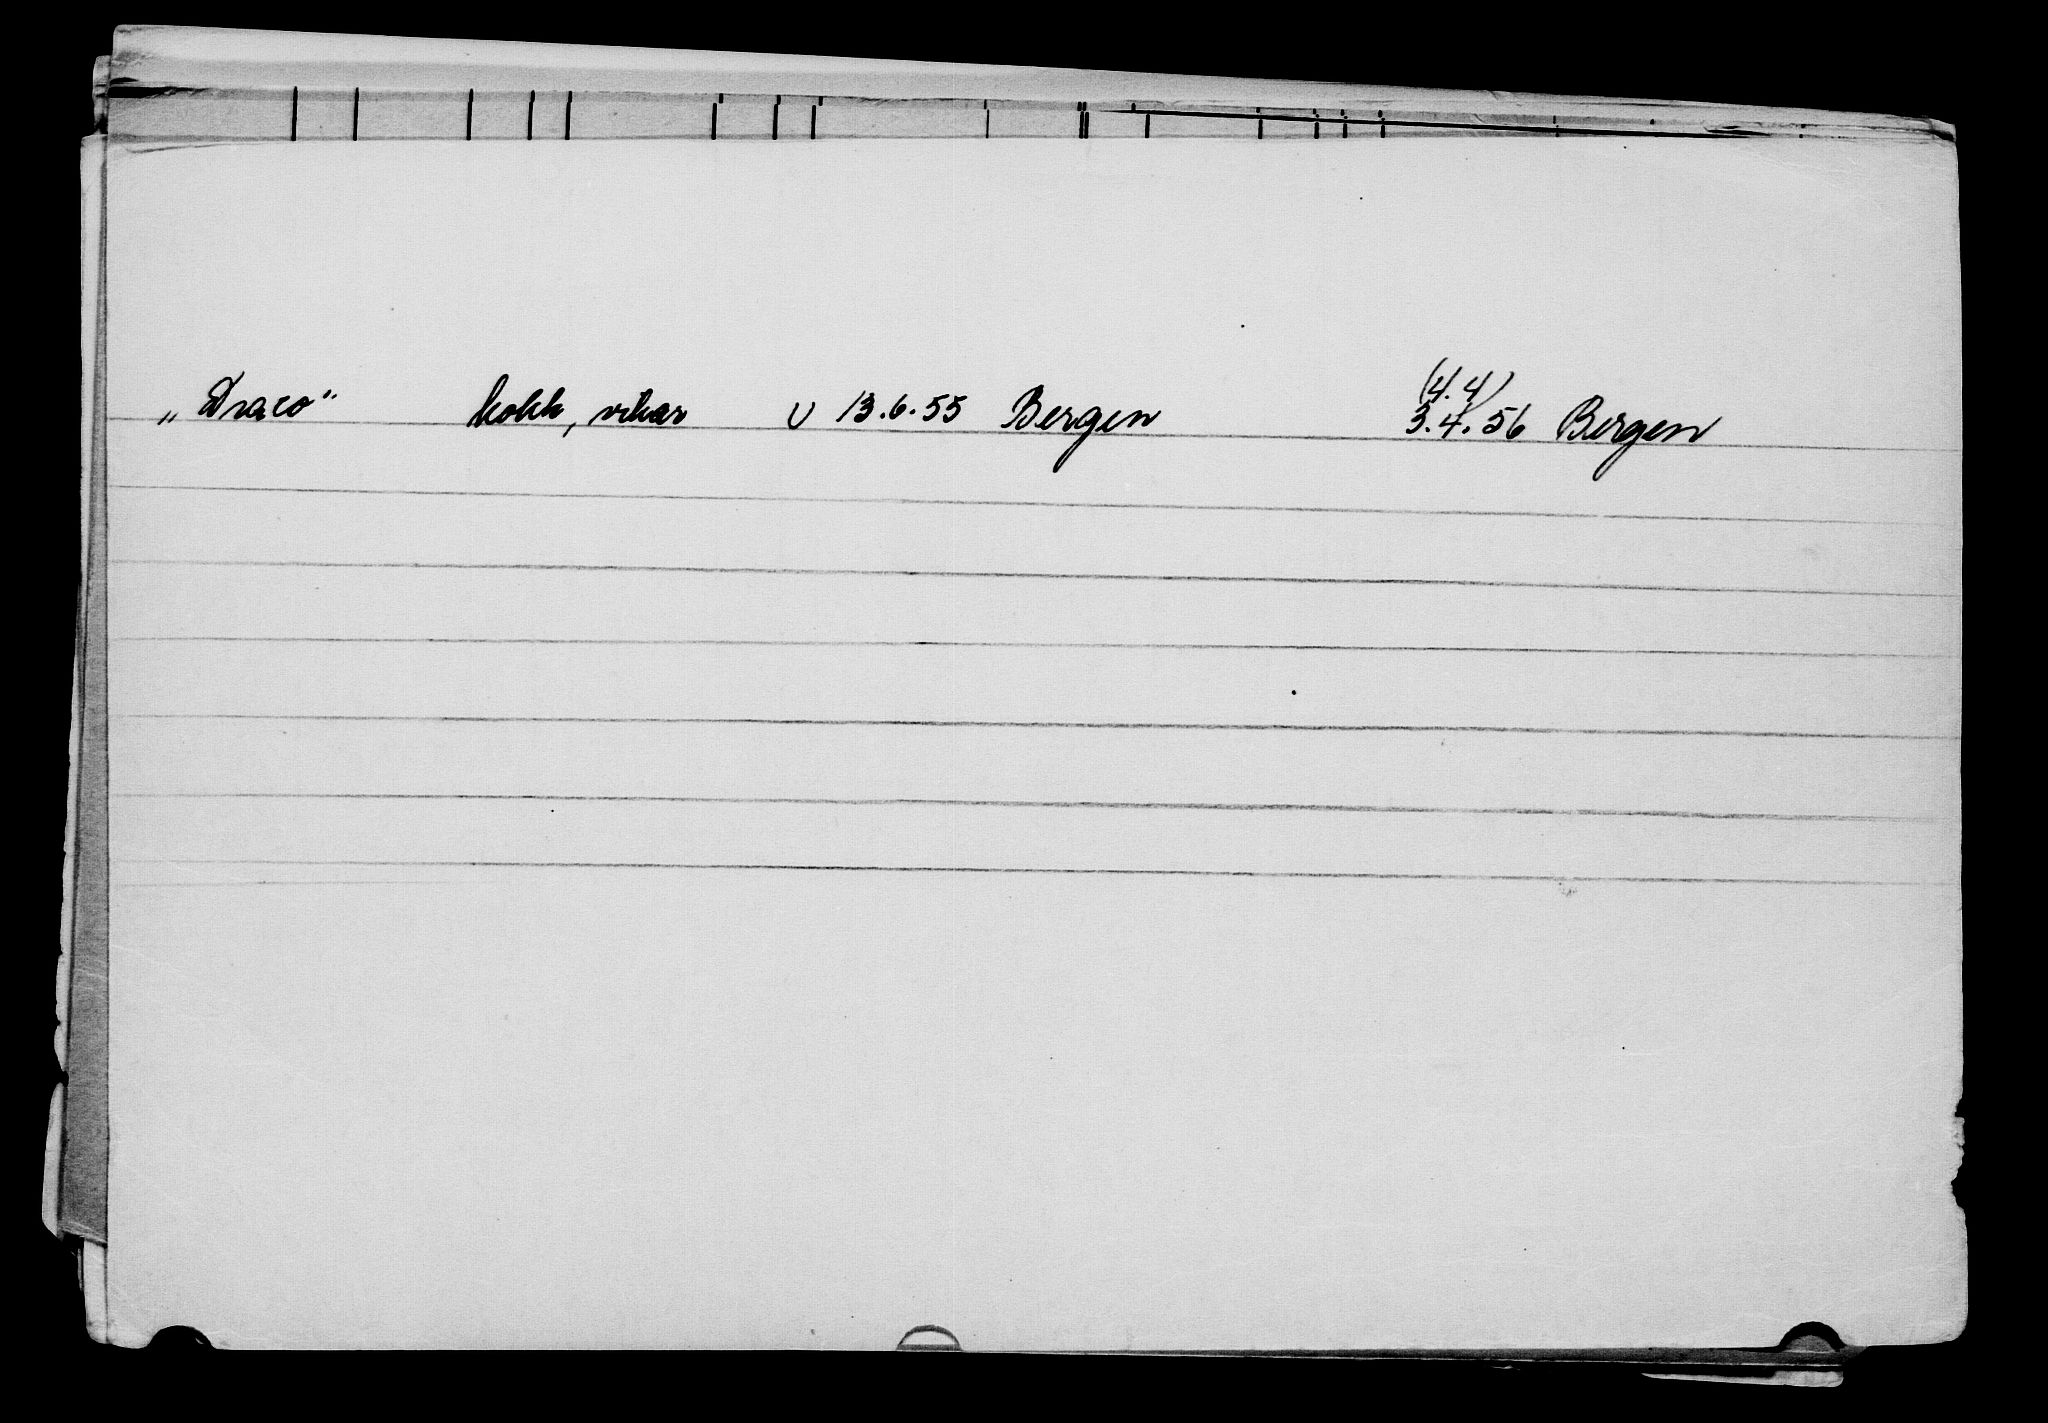 (4.4)
„Draco” kokk, vikar v 13.6.55 Bergen 3.4.56 Bergen